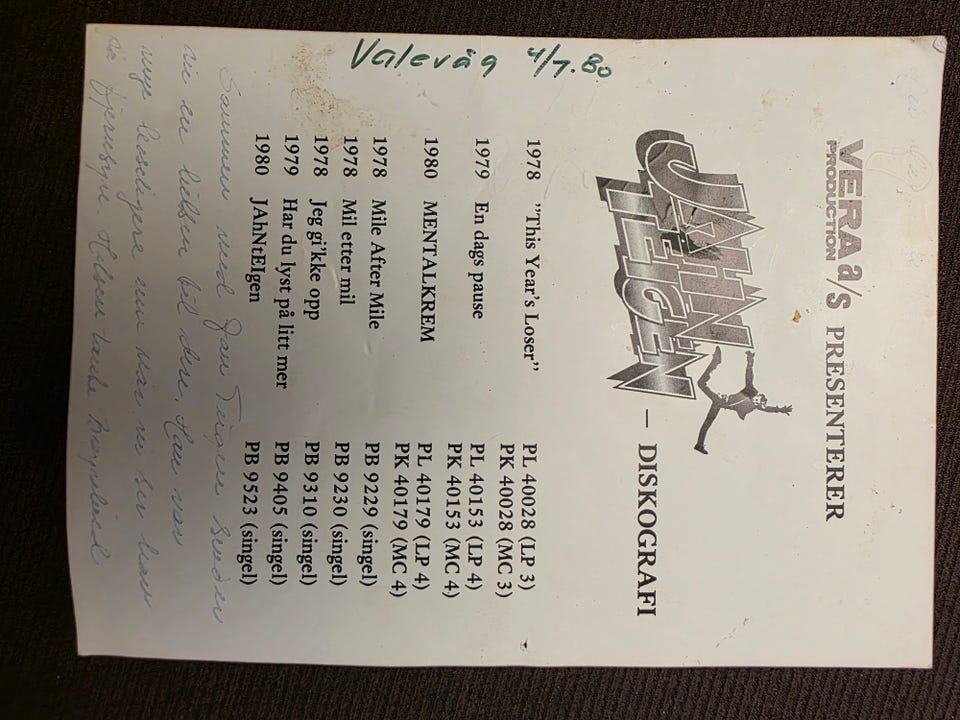 VERA a/s PRESENTERER
PRODUCTION
JAHN
TEIGEN – DISKOGRAFI
1978 ”This Year's Loser” PL 40028 (LP 3)
PK 40028 (MC 3)
1979 En dags pause PL 40153 (LP 4)
PK 40153 (MC 4)
1980 MENTALKREM PL 40179 (LP 4)
PK 40179 (MC 4)
1978 Mile After Mile PB 9229 (singel)
1978 Mil etter mil PB 9230 (singel)
1978 Jeg gi'kke opp PB 9310 (singel)
1979 Har du lyst på litt mer PB 9405 (singel)
1980 JAhNtEIgen PB 9523 (singel)
Valevåg 4/7.80
Sammen med Jan Teigen sender
vi en hilsen til dere. Han var
mye hyggeligere enn når vi ser han
på fjernsyn. Hilsen